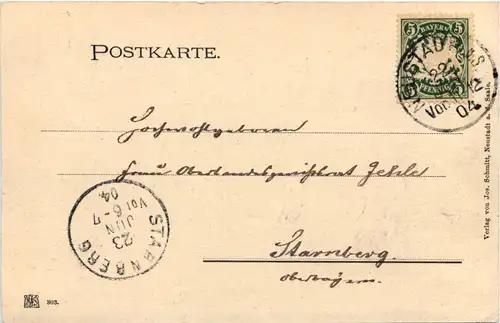 POSTKARTE.
BAYERN
5 5
PFENNIG
22
Vor
04
Hochwohlgeboren
Frau Oberlandesgerichtsrat
Starnberg.
Oberbayern.
STARNBERG
23
JUN
Vor 6-7
04.
Verlag von Jos. Schmitt, Neustadt a. d. Saale.
NK 303.